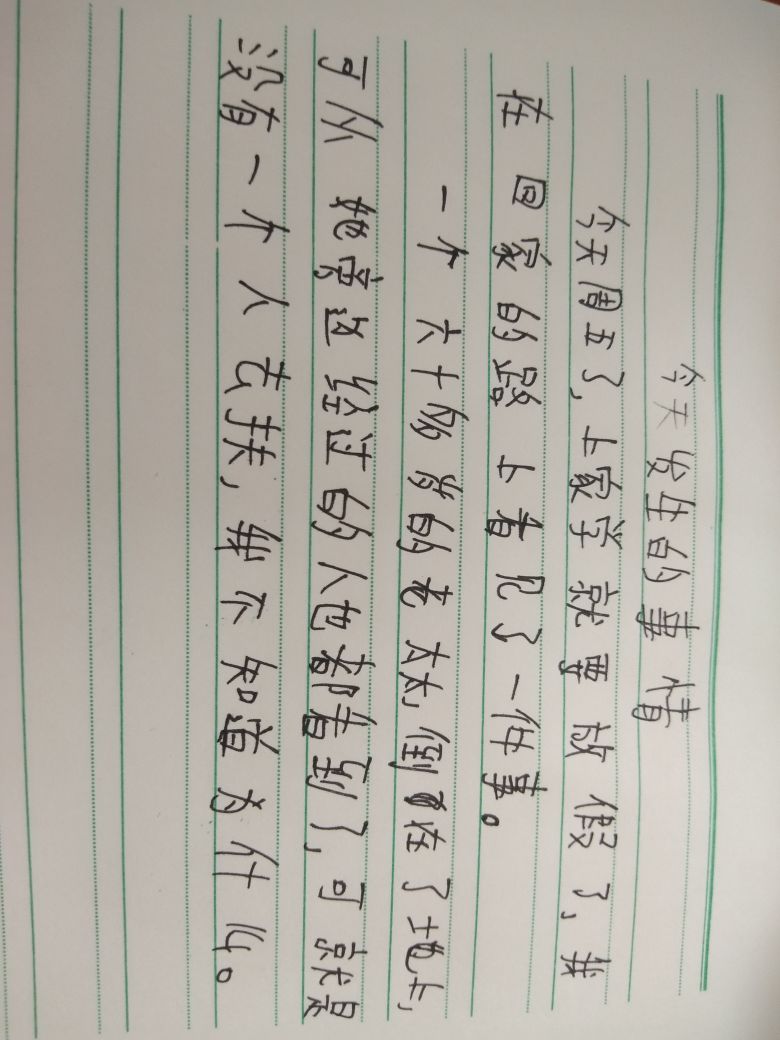 今天发生的事情
今天周五了,上家学就要放假了,我
在回家的路上看见了一件事。
一个六十多岁的老太太,倒在了地上,
可从她旁边经过的人也都看到了,可就是
没有一个人去扶,我不知道为什么。